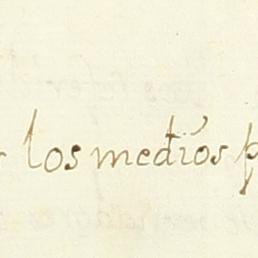 los medios p